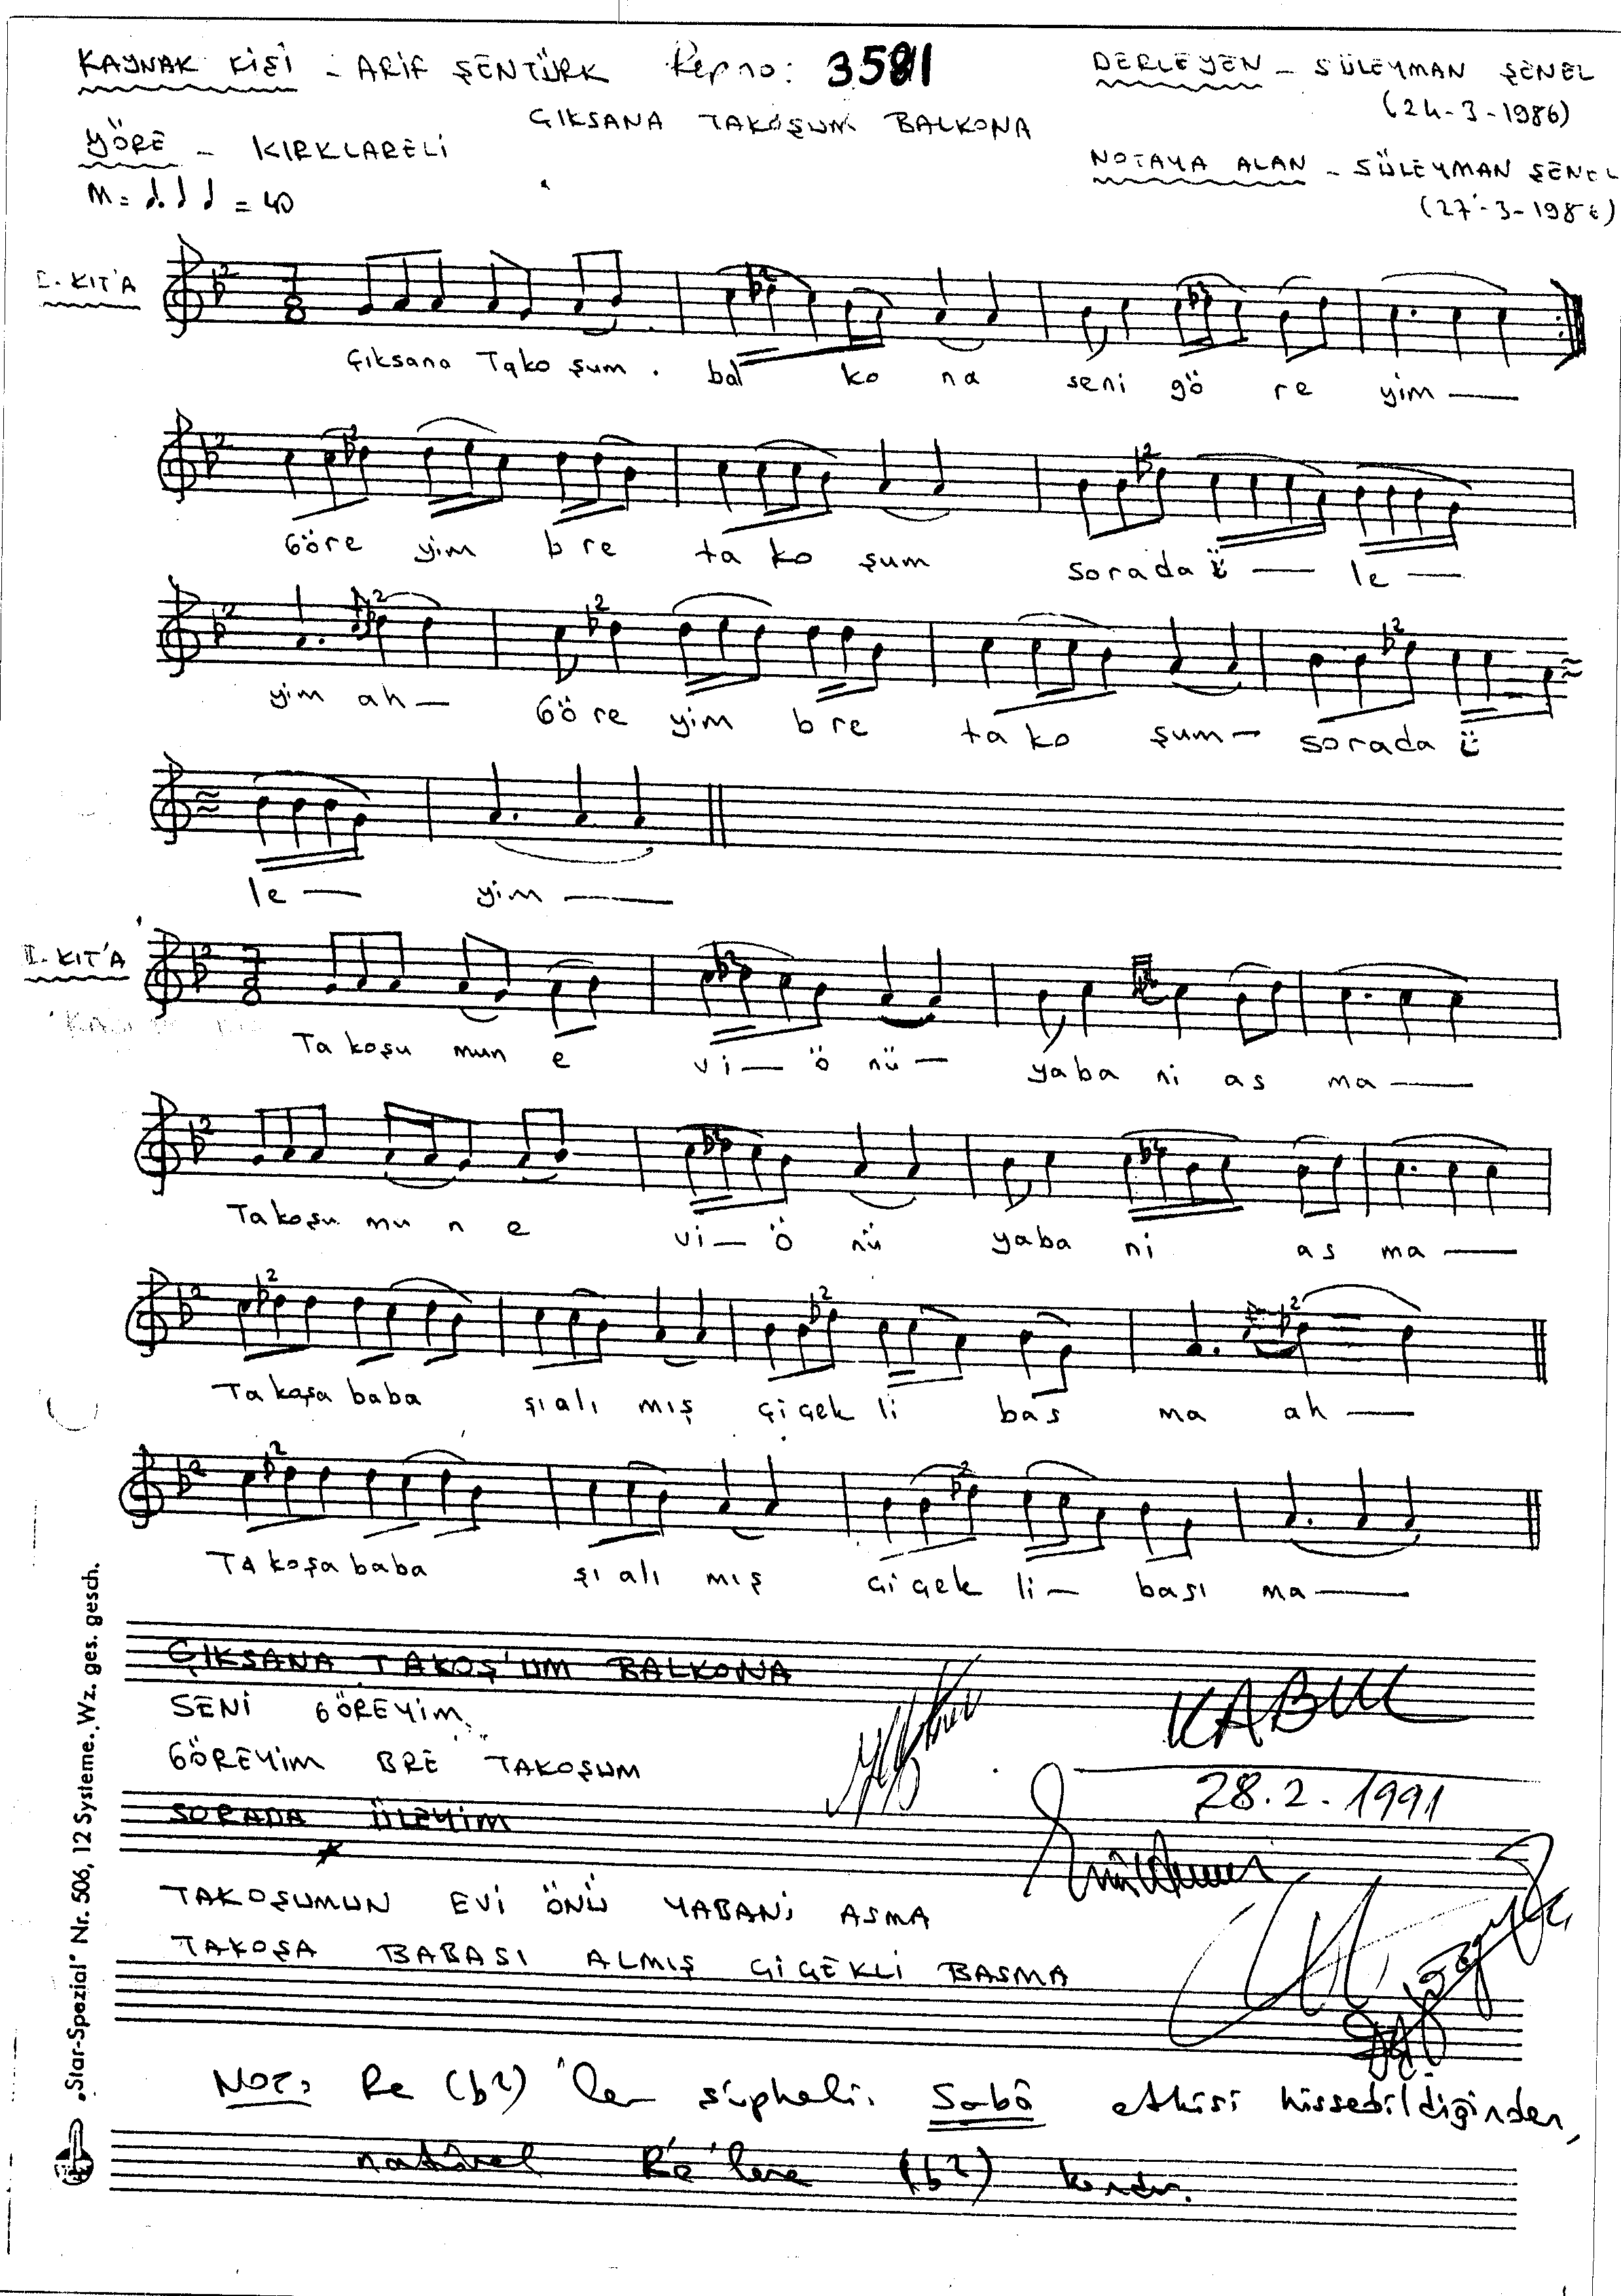 KAYNAK KİŞİ - ARİF ŞENTÜRK Rep no: 3581
DERLEYEN - SÜLEYMAN ŞENEL
(24-3-1986)
ÇIKSANA TAKOŞUM BALKONA
YÖRE - KIRKLARELİ
NOTAYA ALAN - SÜLEYMAN ŞENEL
(27-3-1986)
M = ♩. ♩ ♩ = 40
I. KIT'A
Çıksana Tako şum bal ko na seni gö re yim —
Göre yim b re ta ko şum sorada ü — le —
yim ah — Gö re yim b re ta ko şum — sorada ü
le — yim —
II. KIT'A
Ta koşu mun e vi — ö nü — yaba ni as ma —
Ta koşu mu n e vi — ö nü yaba ni as ma —
Ta koşa baba şı alı mış çi çek li bas ma ah —
Ta koşa baba şı alı mış çi çek li — bası ma —
ÇIKSANA TAKOŞ'UM BALKONA
SENİ GÖREYİM
GÖREYİM BRE TAKOŞUM
SORADA ÜLEYİM
TAKOŞUMUN EVİ ÖNÜ YABANİ ASMA
TAKOŞA BABASI ALMIŞ ÇİÇEKLİ BASMA
KABUL
28.2.1991
NOT: Re (b2) 'ler şüpheli. Sabâ etkisi hissedildiğinden,
natürel Re'lere (b2) kondu.
„Star-Spezial" Nr. 506, 12 Systeme. Wz. ges. gesch.